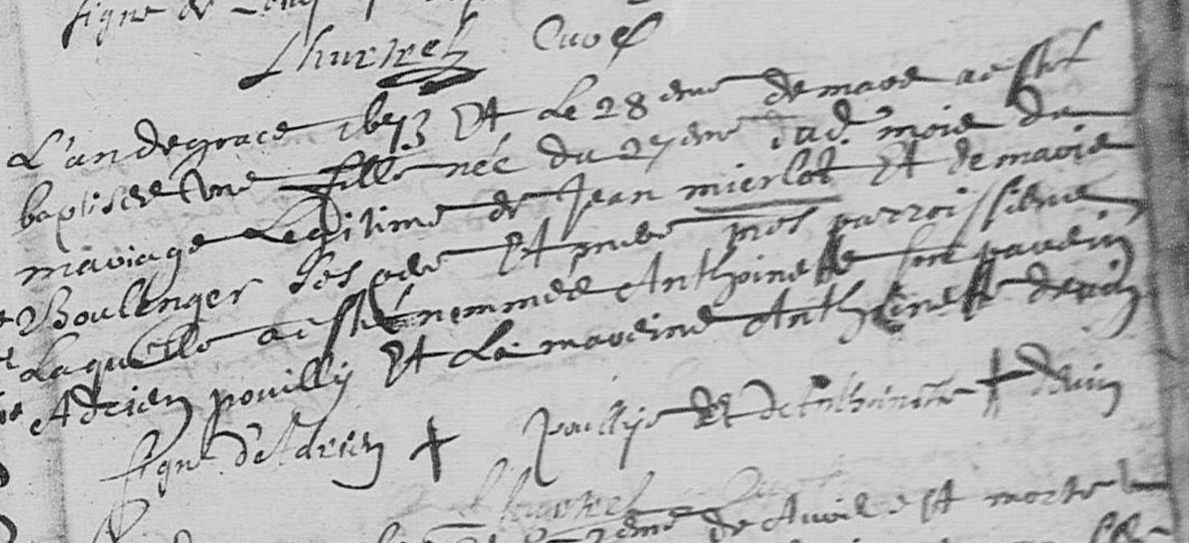 signe de
Lhurrel Curé
L'an de grace 1673 et le 28eme de mars a esté
baptisée une fille née du 27eme dud. mois du
mariage legitime de Jean mierlot et de marie
Boulenger ses pere et mere mes parroissiens
Laquelle a esté nommée Anthoinette son parein
Adrien pouilly et La mareine Anthoinette devin
signe d'Adrien + pouilly et de Anthoinette + devin
Lhurrel
2eme de Avril est morte